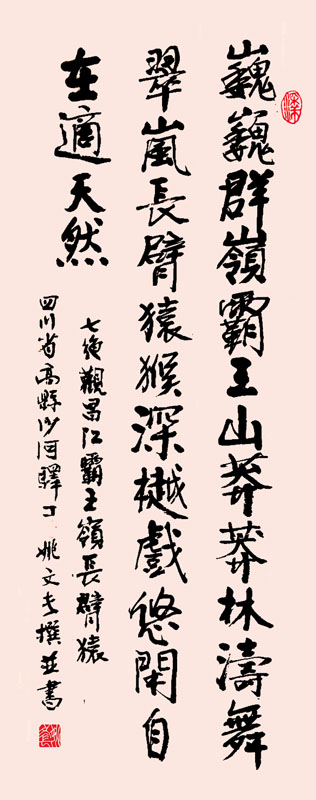 巍巍群嶺霸王山莽莽林濤舞
翠嵐長臂猿猴深樾戲悠閑自
在適天然
七絶觀昌江霸王嶺長臂猿
四川省高縣沙河驛 姚文長撰並書